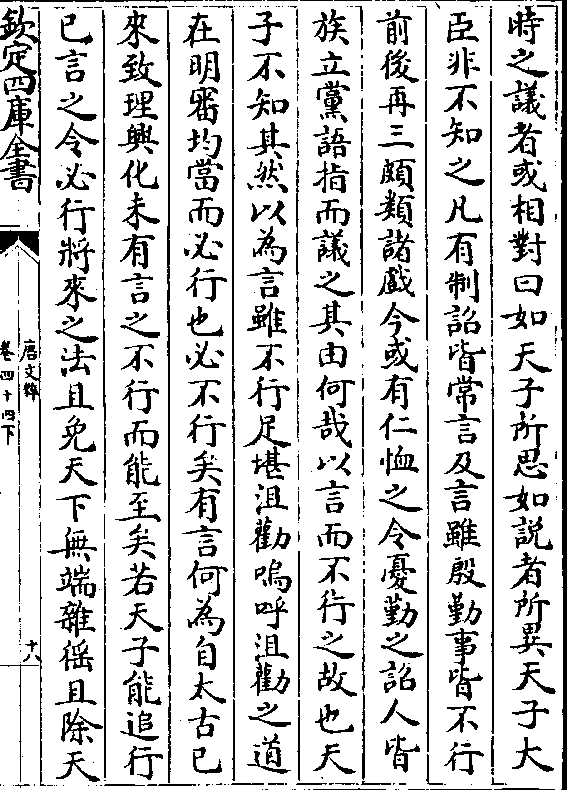 時之議者或相對曰如天子所思如說者所異天子大
臣非不知之凡有制詔皆常言及言雖殷勤事皆不行
前後再三頗類諧戲今或有仁恤之令憂勤之詔人皆
族立黨語指而議之其由何哉以言而不行之故也天
子不知其然以為言雖不行足堪沮勸嗚呼沮勸之道
在明審均當而必行也必不行矣有言何為自太古已
來致理興化未有言之不行而能至矣若天子能追行
已言之令必行將來之法且免天下無端雜徭且除天
欽定四庫全書
唐文粹
卷四十四下
十八